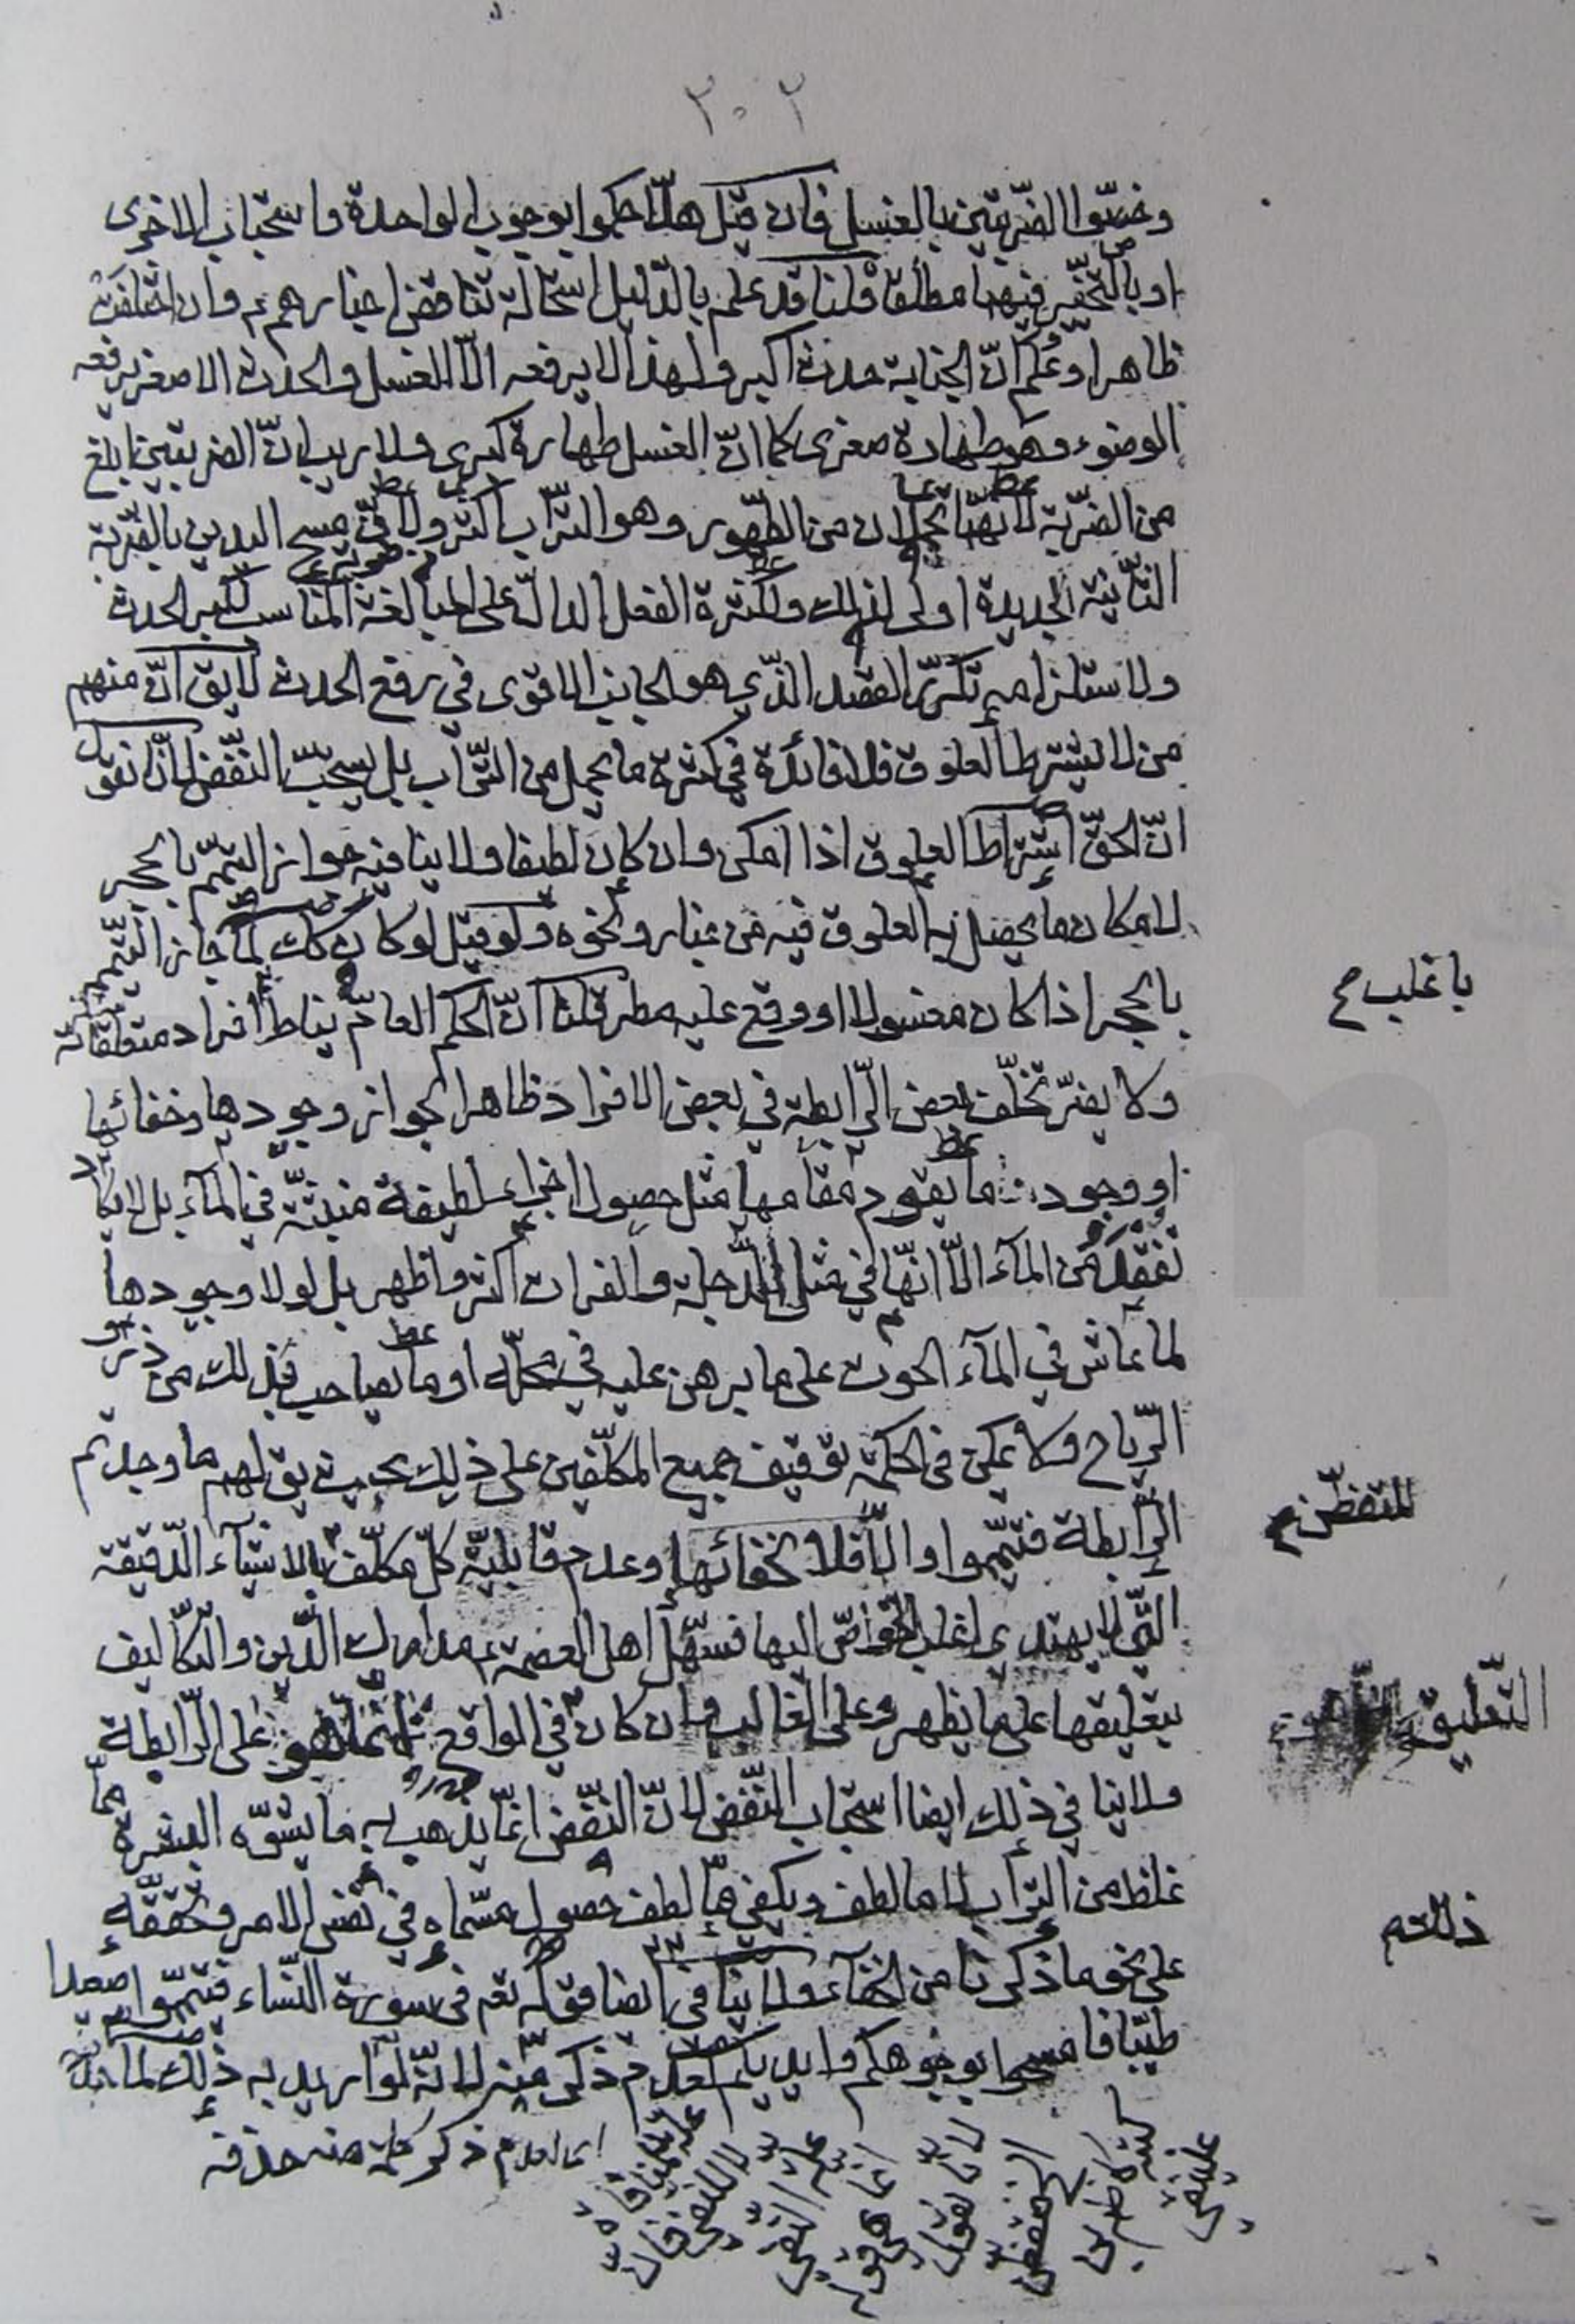 ٣٠٢
وخصّوا الضّربتين بالغسل فان قيل هلّا حكموا بوجوب الواحدة واستحباب الاخرى
او بالتخيّر فيهما مطلقا قلنا قد علم بالدّليل استحالة تناقض اخبارهم ع وان اختلفت
ظاهرا وعُلم انّ الجنابة حدث اكبر ولهذا لا يرفعه الّا الغسل والحدث الاصغر يرفعه
الوضوء وهو طهارة صغرى كما انّ الغسل طهارة كبرى ولا ريب انّ الضربتين ابلغ
من الضربة لانهما تحملان من الطّهور وهو التّراب اكثر ولانّ مسح اليدين بالضّربة
الثّانية الجديدة اولى لذلك ولكثرة الفعل الدالّ على المبالغة المناسب لكبير الحدث
ولاستلزامه تكرّر القصد الذّي هو الجانب الاقوى في رفع الحدث لا يق انّ منهم
من لا يشترط العلوق فلا فائدة في كثرة ما يحمل من التّراب بل يستحبّ النّفض لانّا نقول
انّ الحقّ اشتراط العلوق اذا امكن وان كان لطيفا ولا ينافيه جواز التيمّم بالحجر
لامكان ما يحصل به العلوق فيه من غبار ونحوه ولو قيل لو كان كك لما جاز التّيمّم
بالحجر اذا كان مغسولا او وقع عليه مطر قلنا انّ الحكم العامّ يناط افراد متعلّقاته
باغلب ص
ولا يضرّ تخلّف بعض الرّابطة في بعض الافراد ظاهرا لجواز وجودها وخفائها
او وجود ما يقوم مقامها مثل حصول اجزاء لطيفة منبثّة في الماء بل لا يكاد
تفقد من الماء الّا انّها في مثل الدّجلة والفرات اكثر واظهر بل لولا وجودها
لما عاش في الماء الحوت على ما برهن عليه في محلّه او ما يصاحب قبل ذلك من ذرو
الرّياح ولا يمكن في الحكمة توقيف جميع المكلّفين على ذلك بحيث يق لهم ما وجدتم
الرّابطة فتيمّموا والّا فلا لخفائها وعدم قابليّة كلّ مكلّف بالاشياء الدّقيقة
للتفطّن
التّي لا يهتدي اغلب الخواصّ اليها فسهّل اهل العصمة ع مدارك الدّين والتّكاليف
بتعليقها على ما يظهر وعلى الغالب وان كان في الواقع انّما هو على الرّابطة
التّعليق
ولا ينافي ذلك ايضا استحباب النّفض لانّ النّفض انّما يذهب به ما يشوّه البشرة ممّا
غلظ من التّراب لا ما لطف ويكفي ممّا لطف حصول مسمّاه في نفس الامر وتحقّقه
على نحو ما ذكرنا من الخفاء ولا ينافي ايضا قوله تعم في سورة النّساء فتيمّموا صعيدا
ذلك
طيّبا فامسحوا بوجوهكم وايديكم لعدم ذكر منه لانّه لو اريد به ذلك لما
انما لعدم ذكر كلمة منه حذفه